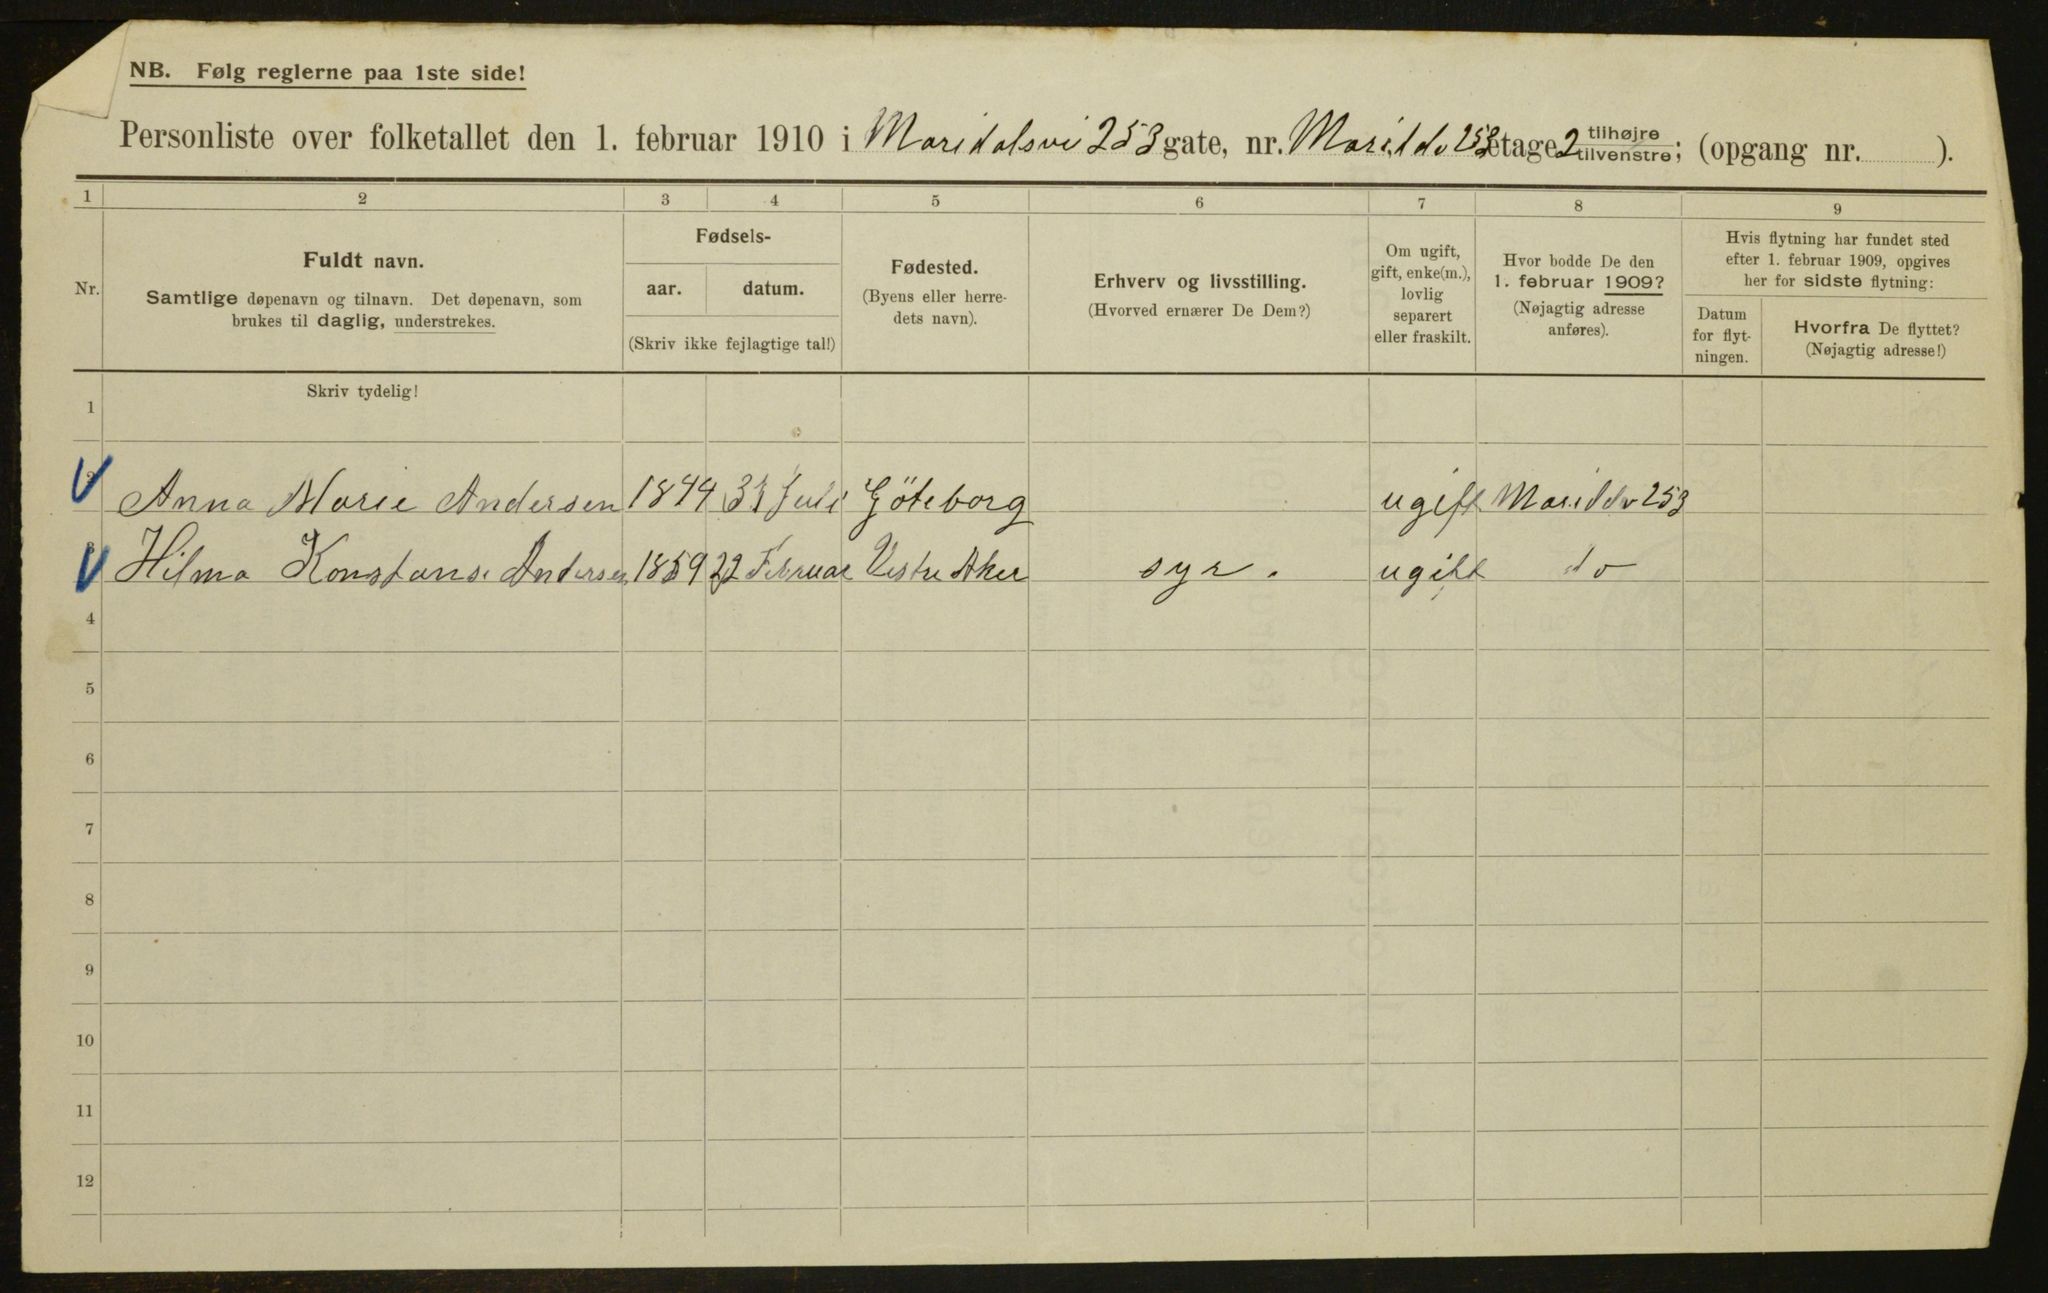 NB. Følg reglerne paa 1ste side!
Personliste over folketallet den 1. februar 1910 i Maridalsvei 253 gate, nr. Maridv 253 etage 2 tilhøjre tilvenstre; (opgang nr. ).
1 2 3 4 5 6 7 8 9
Nr.
Fuldt navn.
Samtlige døpenavn og tilnavn. Det døpenavn, som
brukes til daglig, understrekes.
Fødsels-
aar. datum.
(Skriv ikke fejlagtige tal!)
Fødested.
(Byens eller herre-
dets navn).
Erhverv og livsstilling.
(Hvorved ernærer De Dem?)
Om ugift,
gift, enke(m.),
lovlig
separert
eller fraskilt.
Hvor bodde De den
1. februar 1909?
(Nøjagtig adresse
anføres).
Hvis flytning har fundet sted
efter 1. februar 1909, opgives
her for sidste flytning:
Datum
for flyt-
ningen.
Hvorfra De flyttet?
(Nøjagtig adresse!)
Skriv tydelig!
1
2 Anna Marie Andersen 1844 31 Juli Göteborg ugift Maridv 253
3 Hilma Konstanse Andersen 1859 22 Februar Vestre Aker sye. ugift do
4
5
6
7
8
9
10
11
12